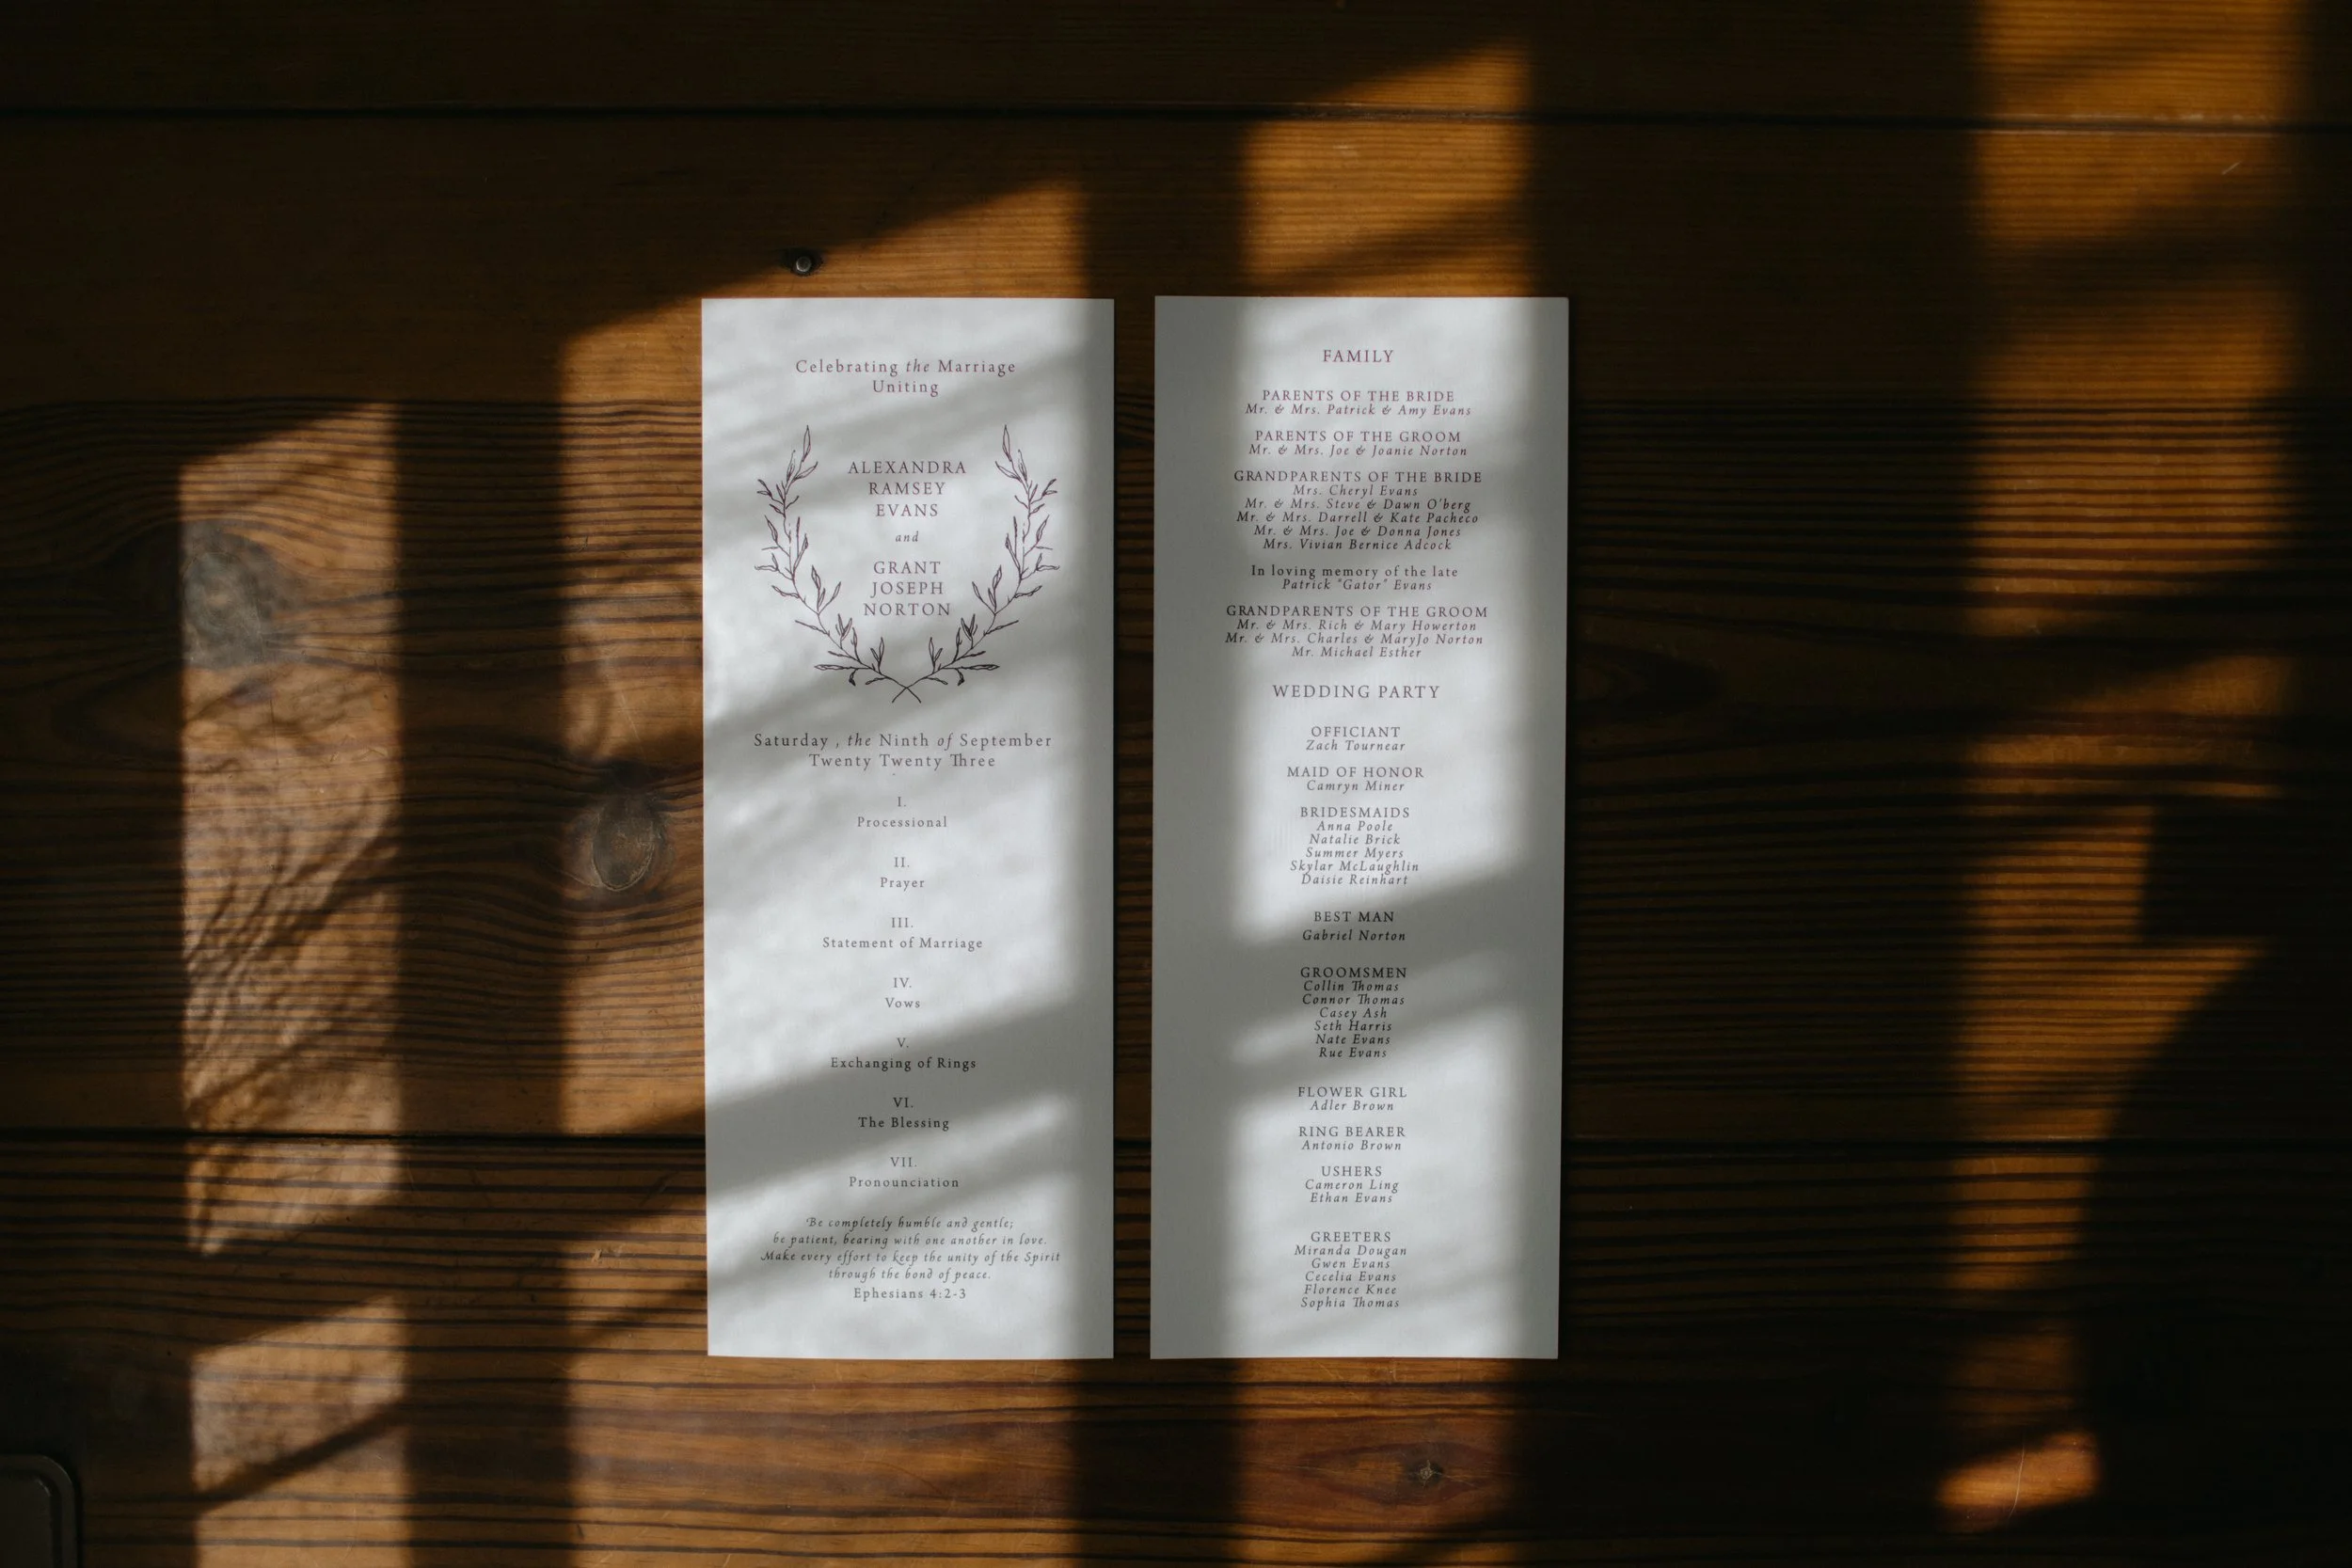 Celebrating the Marriage
Uniting
ALEXANDRA
RAMSEY
EVANS
and
GRANT
JOSEPH
NORTON
Saturday , the Ninth of September
Twenty Twenty Three
I.
Processional
II.
Prayer
III.
Statement of Marriage
IV.
Vows
V.
Exchanging of Rings
VI.
The Blessing
VII.
Pronounciation
Be completely humble and gentle;
be patient, bearing with one another in love.
Make every effort to keep the unity of the Spirit
through the bond of peace.
Ephesians 4:2-3
FAMILY
PARENTS OF THE BRIDE
Mr. & Mrs. Patrick & Amy Evans
PARENTS OF THE GROOM
Mr. & Mrs. Joe & Joanie Norton
GRANDPARENTS OF THE BRIDE
Mrs. Cheryl Evans
Mr. & Mrs. Steve & Dawn O'berg
Mr. & Mrs. Darrell & Kate Pacheco
Mr. & Mrs. Joe & Donna Jones
Mrs. Vivian Bernice Adcock
In loving memory of the late
Patrick "Gator" Evans
GRANDPARENTS OF THE GROOM
Mr. & Mrs. Rich & Mary Howerton
Mr. & Mrs. Charles & MaryJo Norton
Mr. Michael Esther
WEDDING PARTY
OFFICIANT
Zach Tournear
MAID OF HONOR
Camryn Miner
BRIDESMAIDS
Anna Poole
Natalie Brick
Summer Myers
Skylar McLaughlin
Daisie Reinhart
BEST MAN
Gabriel Norton
GROOMSMEN
Collin Thomas
Connor Thomas
Casey Ash
Seth Harris
Nate Evans
Rue Evans
FLOWER GIRL
Adler Brown
RING BEARER
Antonio Brown
USHERS
Cameron Ling
Ethan Evans
GREETERS
Miranda Dougan
Gwen Evans
Cecelia Evans
Florence Knee
Sophia Thomas